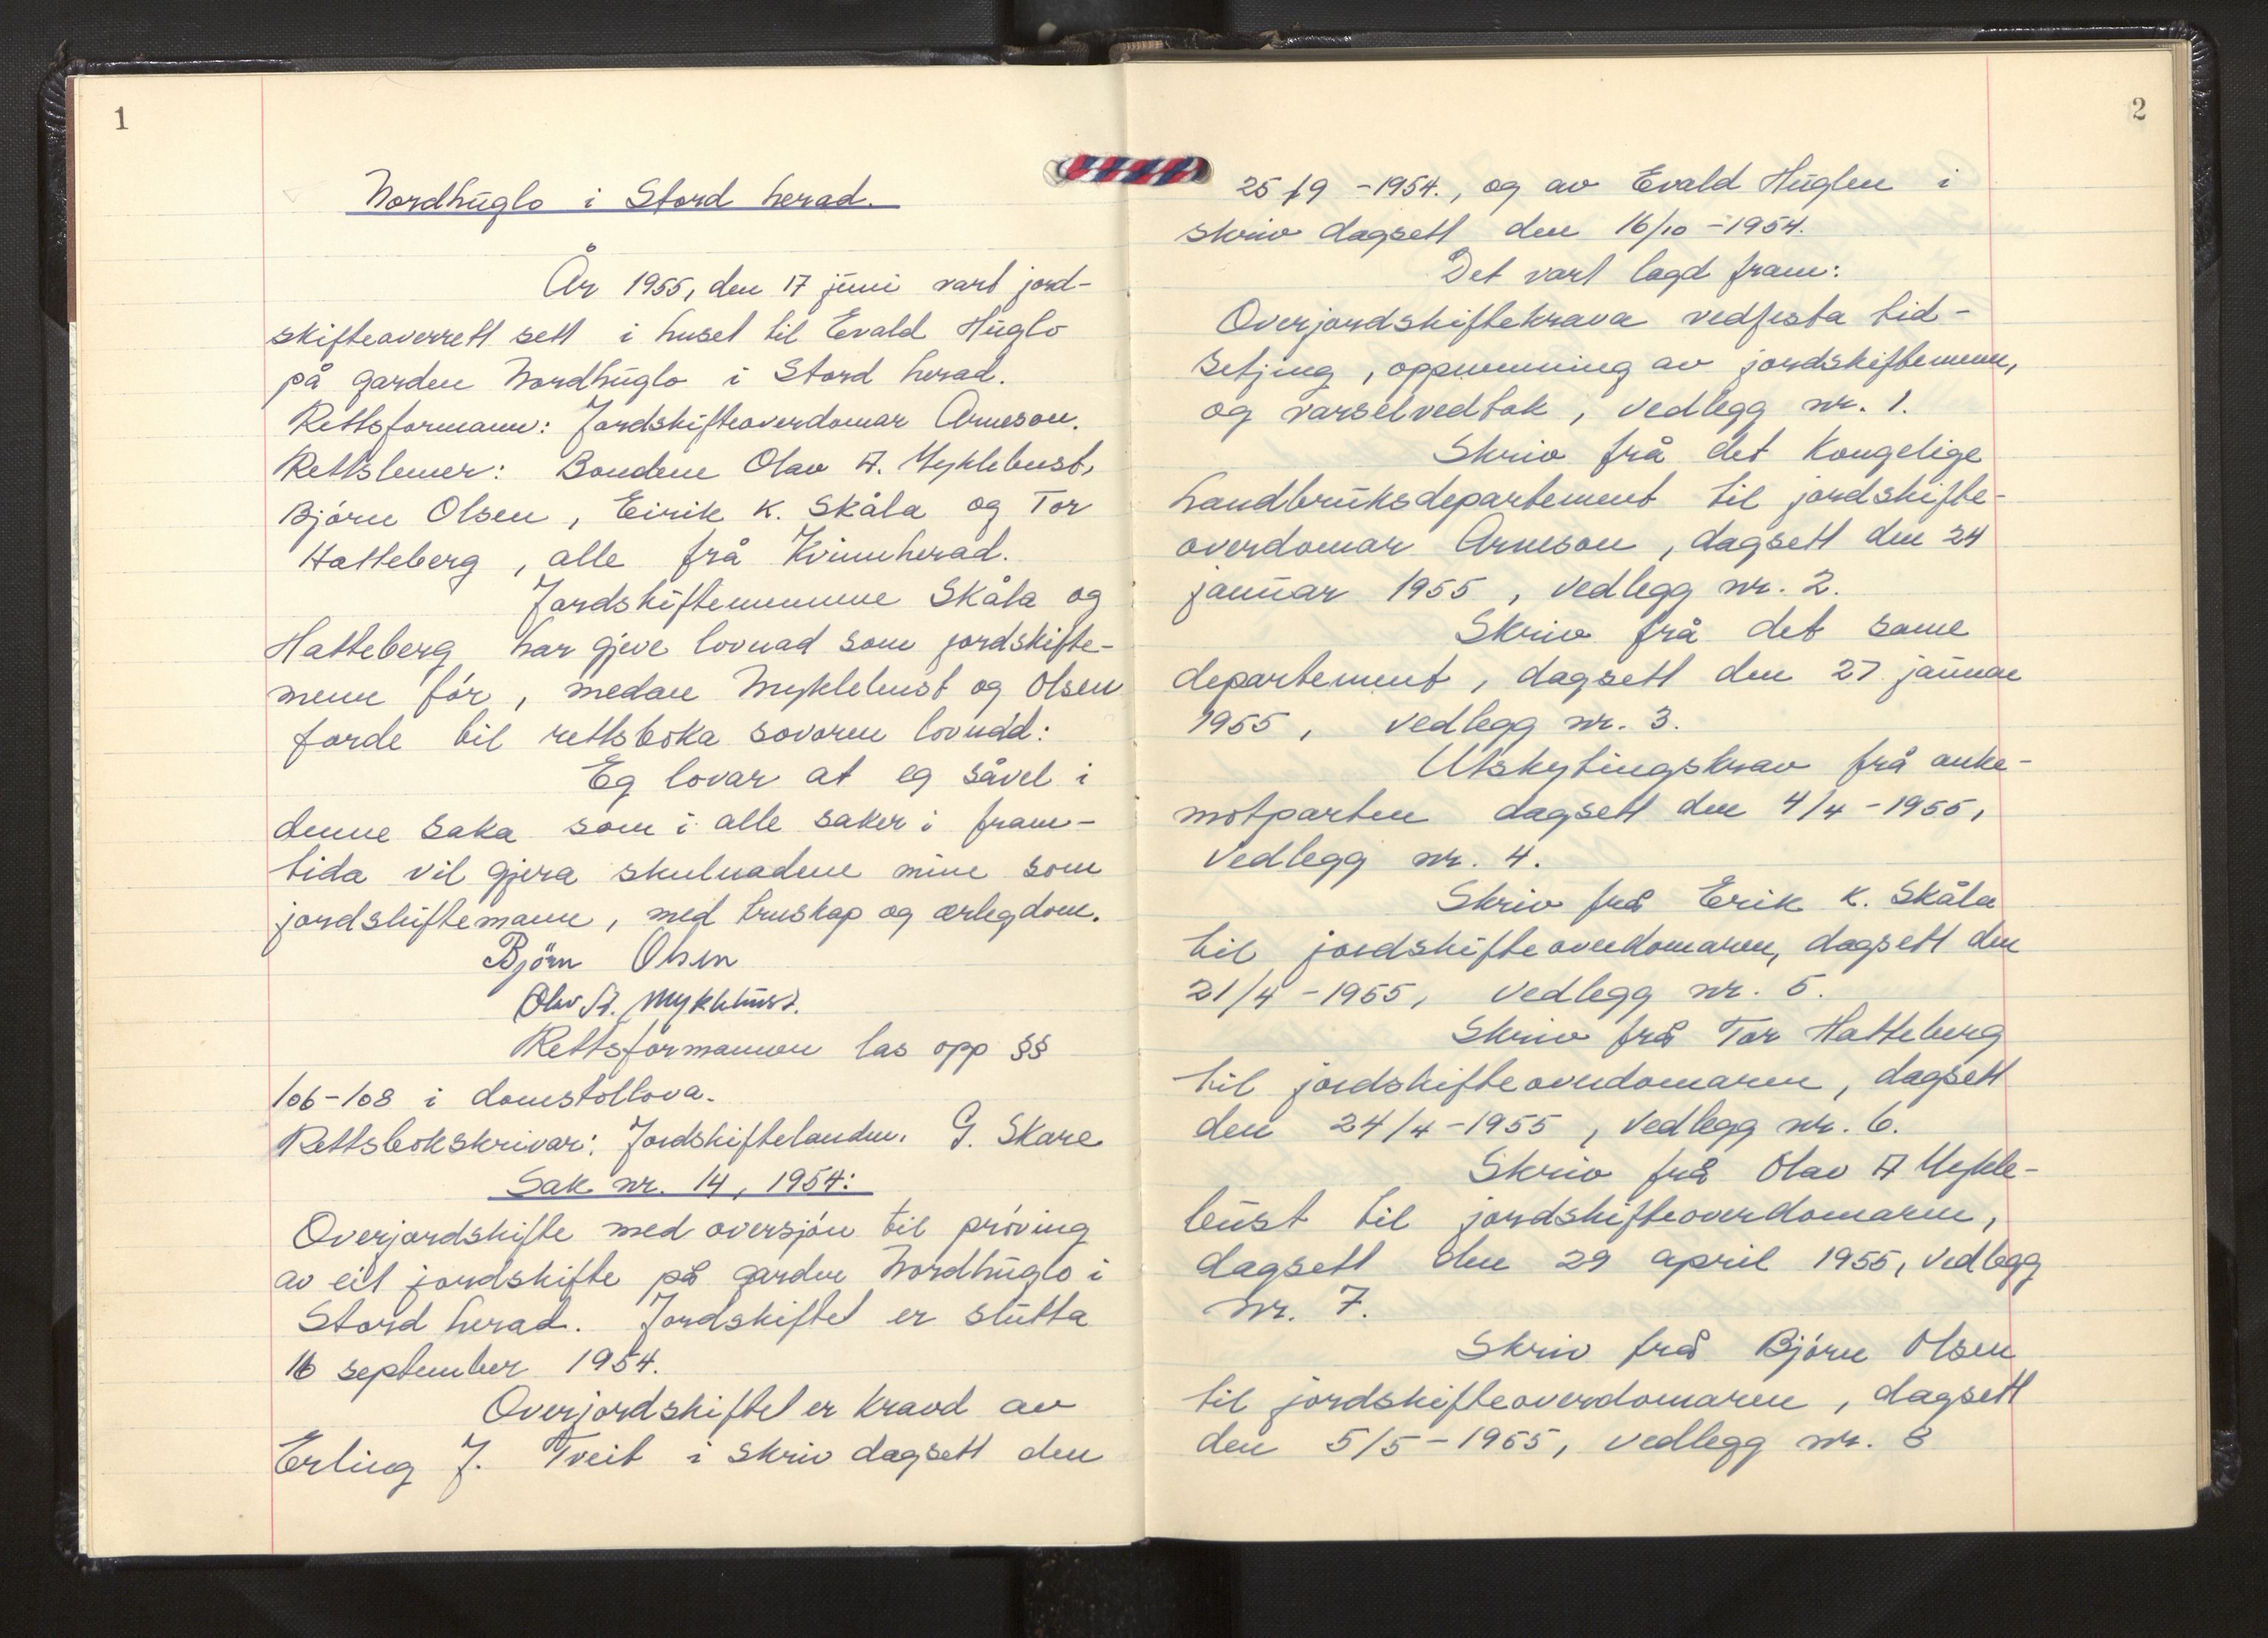 1
Nordhuglo i Stord herad.
År 1955, den 17 juni vart jord-
skifteoverrett sett i huset til Evald Huglo
på garden Nordhuglo i Stord herad.
Rettsformann: Jordskifteoverdomar Arneson.
Rettslemer: Bøndene Olav A. Myklebust,
Bjørn Olsen, Eirik K. Skåla og Tor
Hatteberg, alle frå Kvinnherad.
Jordskiftemennene Skåla og
Hatteberg har gjeve lovnad som jordskifte-
menn før, medan Myklebust og Olsen
førde til rettsboka sovoren lovnad:
Eg lovar at eg såvel i
denne saka som i alle saker i fram-
tida vil gjera skulnadene mine som
jordskiftemann, med truskap og ærlegdom.
Björn Olsen
Olav A. Myklebust.
Rettsformannen las opp §§
106-108 i domstollova.
Rettsbokskrivar: Jordskiftekandm. G. Skare
Sak nr. 14, 1954:
Overjordskifte med oversjøn til prøving
av eit jordskifte på garden Nordhuglo i
Stord herad. Jordskiftet er slutta
16 september 1954.
Overjordskiftet er kravd av
Erling J. Tveit i skriv dagsett den
2
25/9-1954., og av Evald Huglen i
skriv dagsett den 16/10-1954.
Det vart lagd fram:
Overjordskiftekrava vedfesta tid-
setjing, oppnemning av jordskiftemenn,
og varselvedtak, vedlegg nr. 1.
Skriv frå det Kongelige
Landbruksdepartement til jordskifte-
overdomar Arneson, dagsett den 24
januar 1955, vedlegg nr. 2.
Skriv frå det same
departement, dagsett den 27 januar
1955, vedlegg nr. 3.
Utskytingskrav frå anke-
motparten dagsett den 4/4-1955,
vedlegg nr. 4.
Skriv frå Erik K. Skåla
til jordskifteoverdomaren, dagsett den
21/4-1955, vedlegg nr. 5.
Skriv frå Tor Hatteberg
til jordskifteoverdomaren, dagsett
den 24/4-1955, vedlegg nr. 6.
Skriv frå Olav A Mykle-
bust til jordskifteoverdomaren,
dagsett den 29 april 1955, vedlegg
nr. 7.
Skriv frå Bjørn Olsen
til jordskifteoverdomaren, dagsett
den 5/5-1955, vedlegg nr. 8